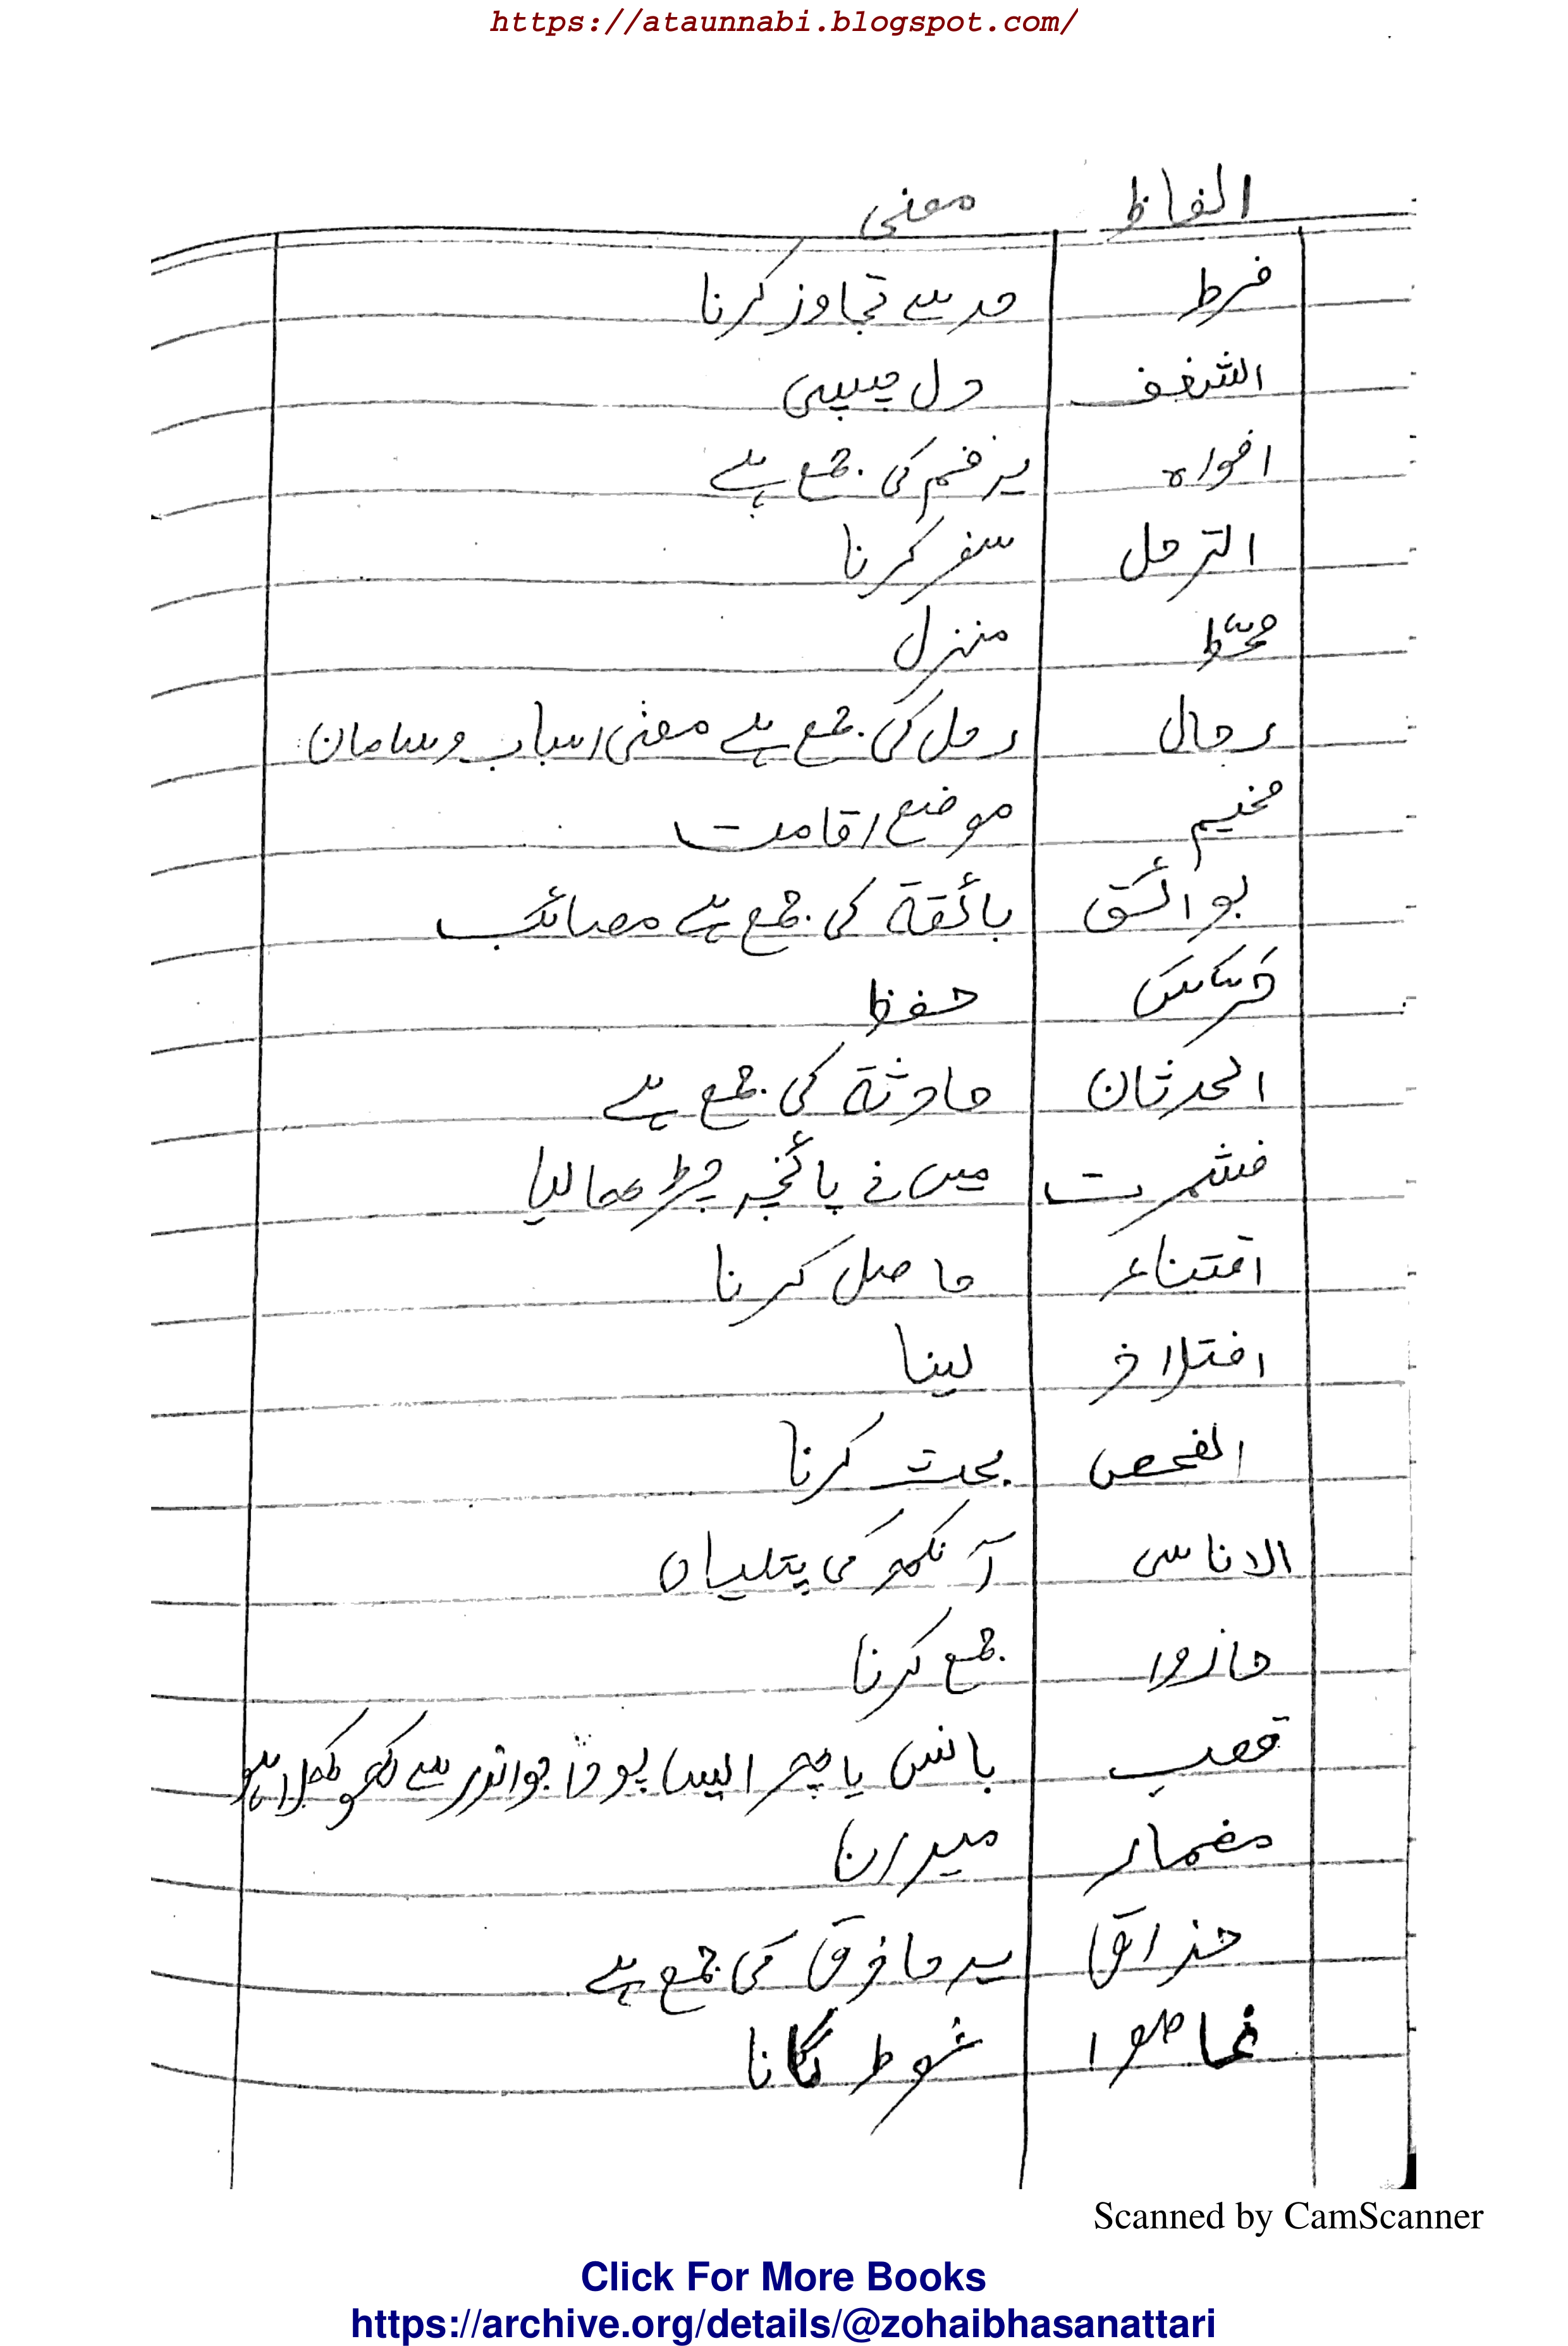 https://ataunnabi.blogspot.com/
الفاظ معنی
فرط حد سے تجاوز کرنا
الشغف دل چسپی
افواہ یہ فم کی جمع ہے
الترحل سفر کرنا
محطّ منزل
رحال رحل کی جمع ہے معنی اسباب و سامان
مخیم موضع اقامت
بوائق بائقة کی جمع ہے مصائب
حفظ
الحدثان حادثة کی جمع ہے
فشمرت میں نے پائنچہ چڑھا لیا
اقتناء حاصل کرنا
لینا
الفحص بحث کرنا
الاناسی آنکھ کی پتلیاں
حازوا جمع کرنا
قصب بانس یا پھر ایسا پودا جو اندر سے کھوکھلا ہو
مضمار میدان
حذاق یہ حاذق کی جمع ہے
غاصوا غوطہ لگانا
Scanned by CamScanner
Click For More Books
https://archive.org/details/@zohaibhasanattari